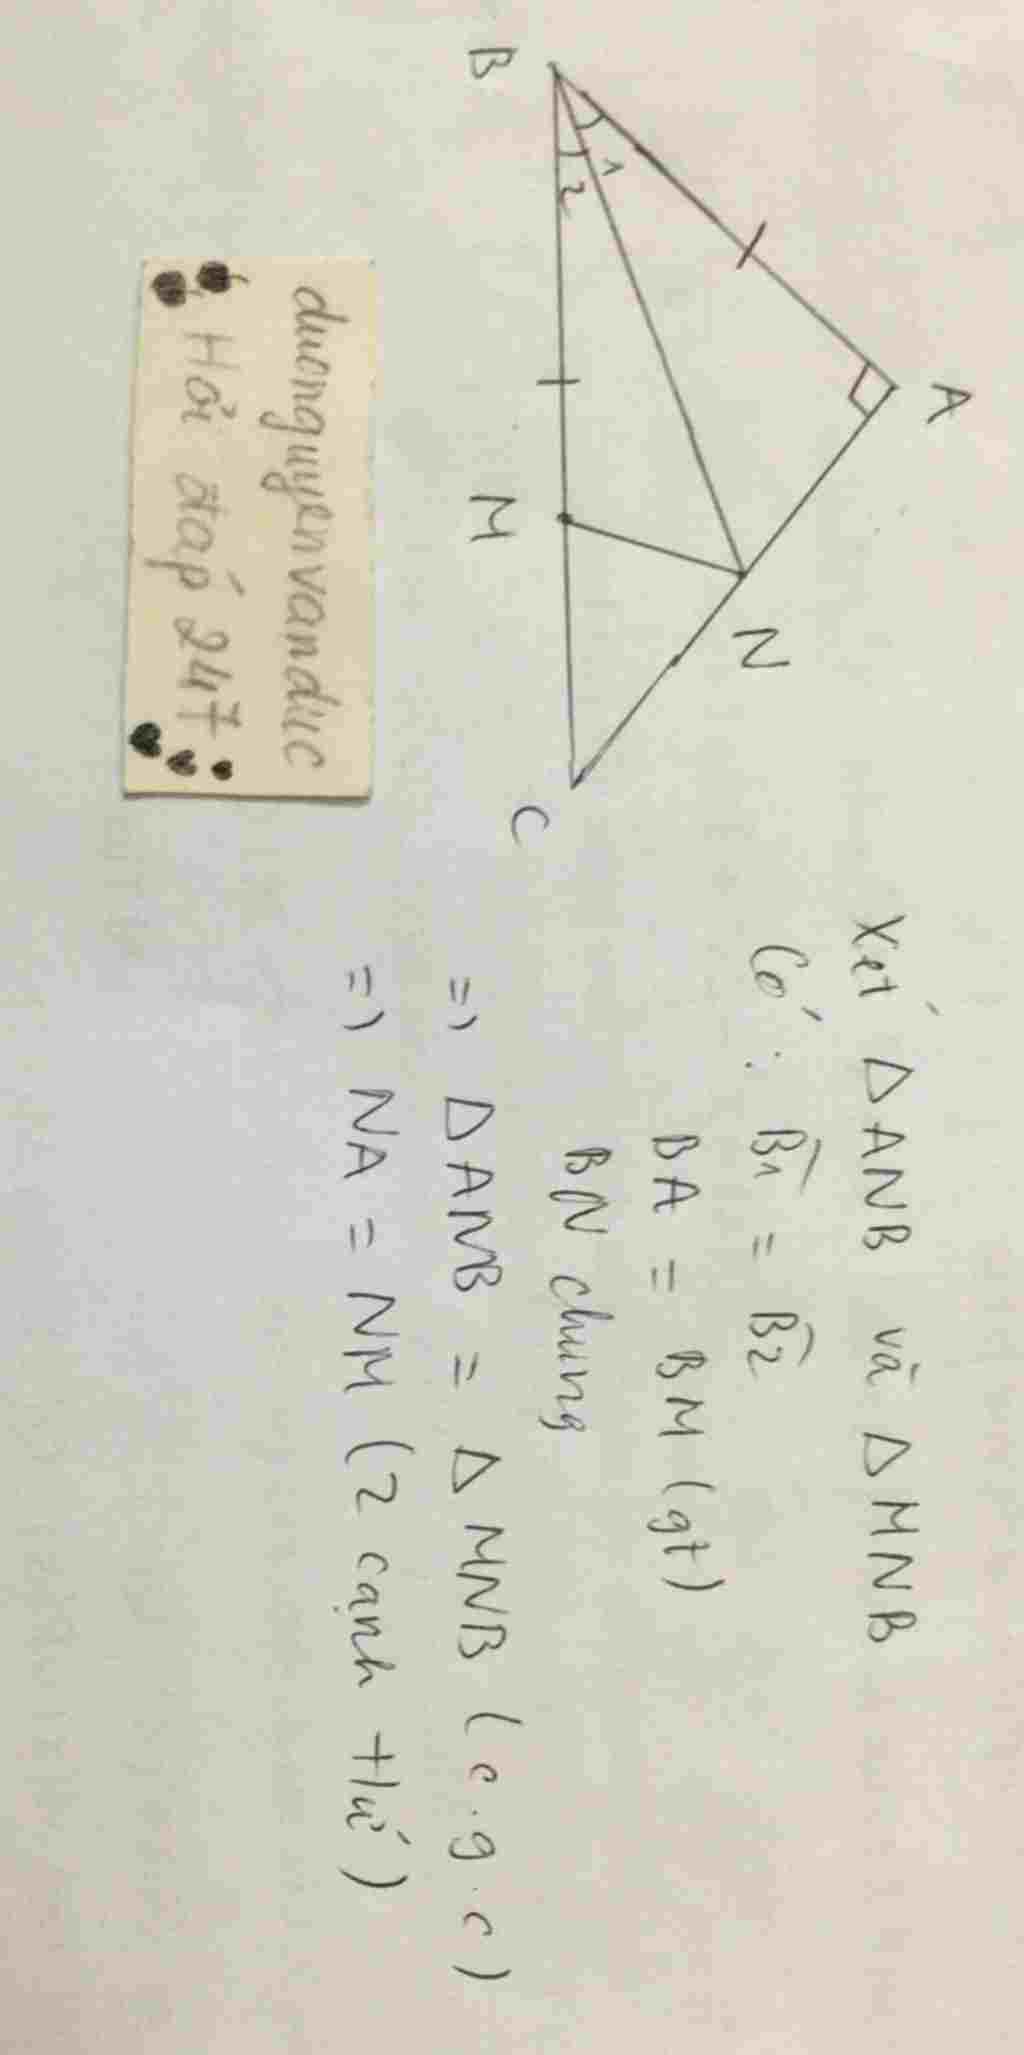 A
B
1
2
N
M
C
duonguyenvanduc
Hỏi đáp 247
Xét ΔANB và ΔMNB
Có: B̂1 = B̂2
BA = BM (gt)
BN chung
=> ΔANB = ΔMNB (c.g.c)
=> NA = NM (2 cạnh t/ứ)